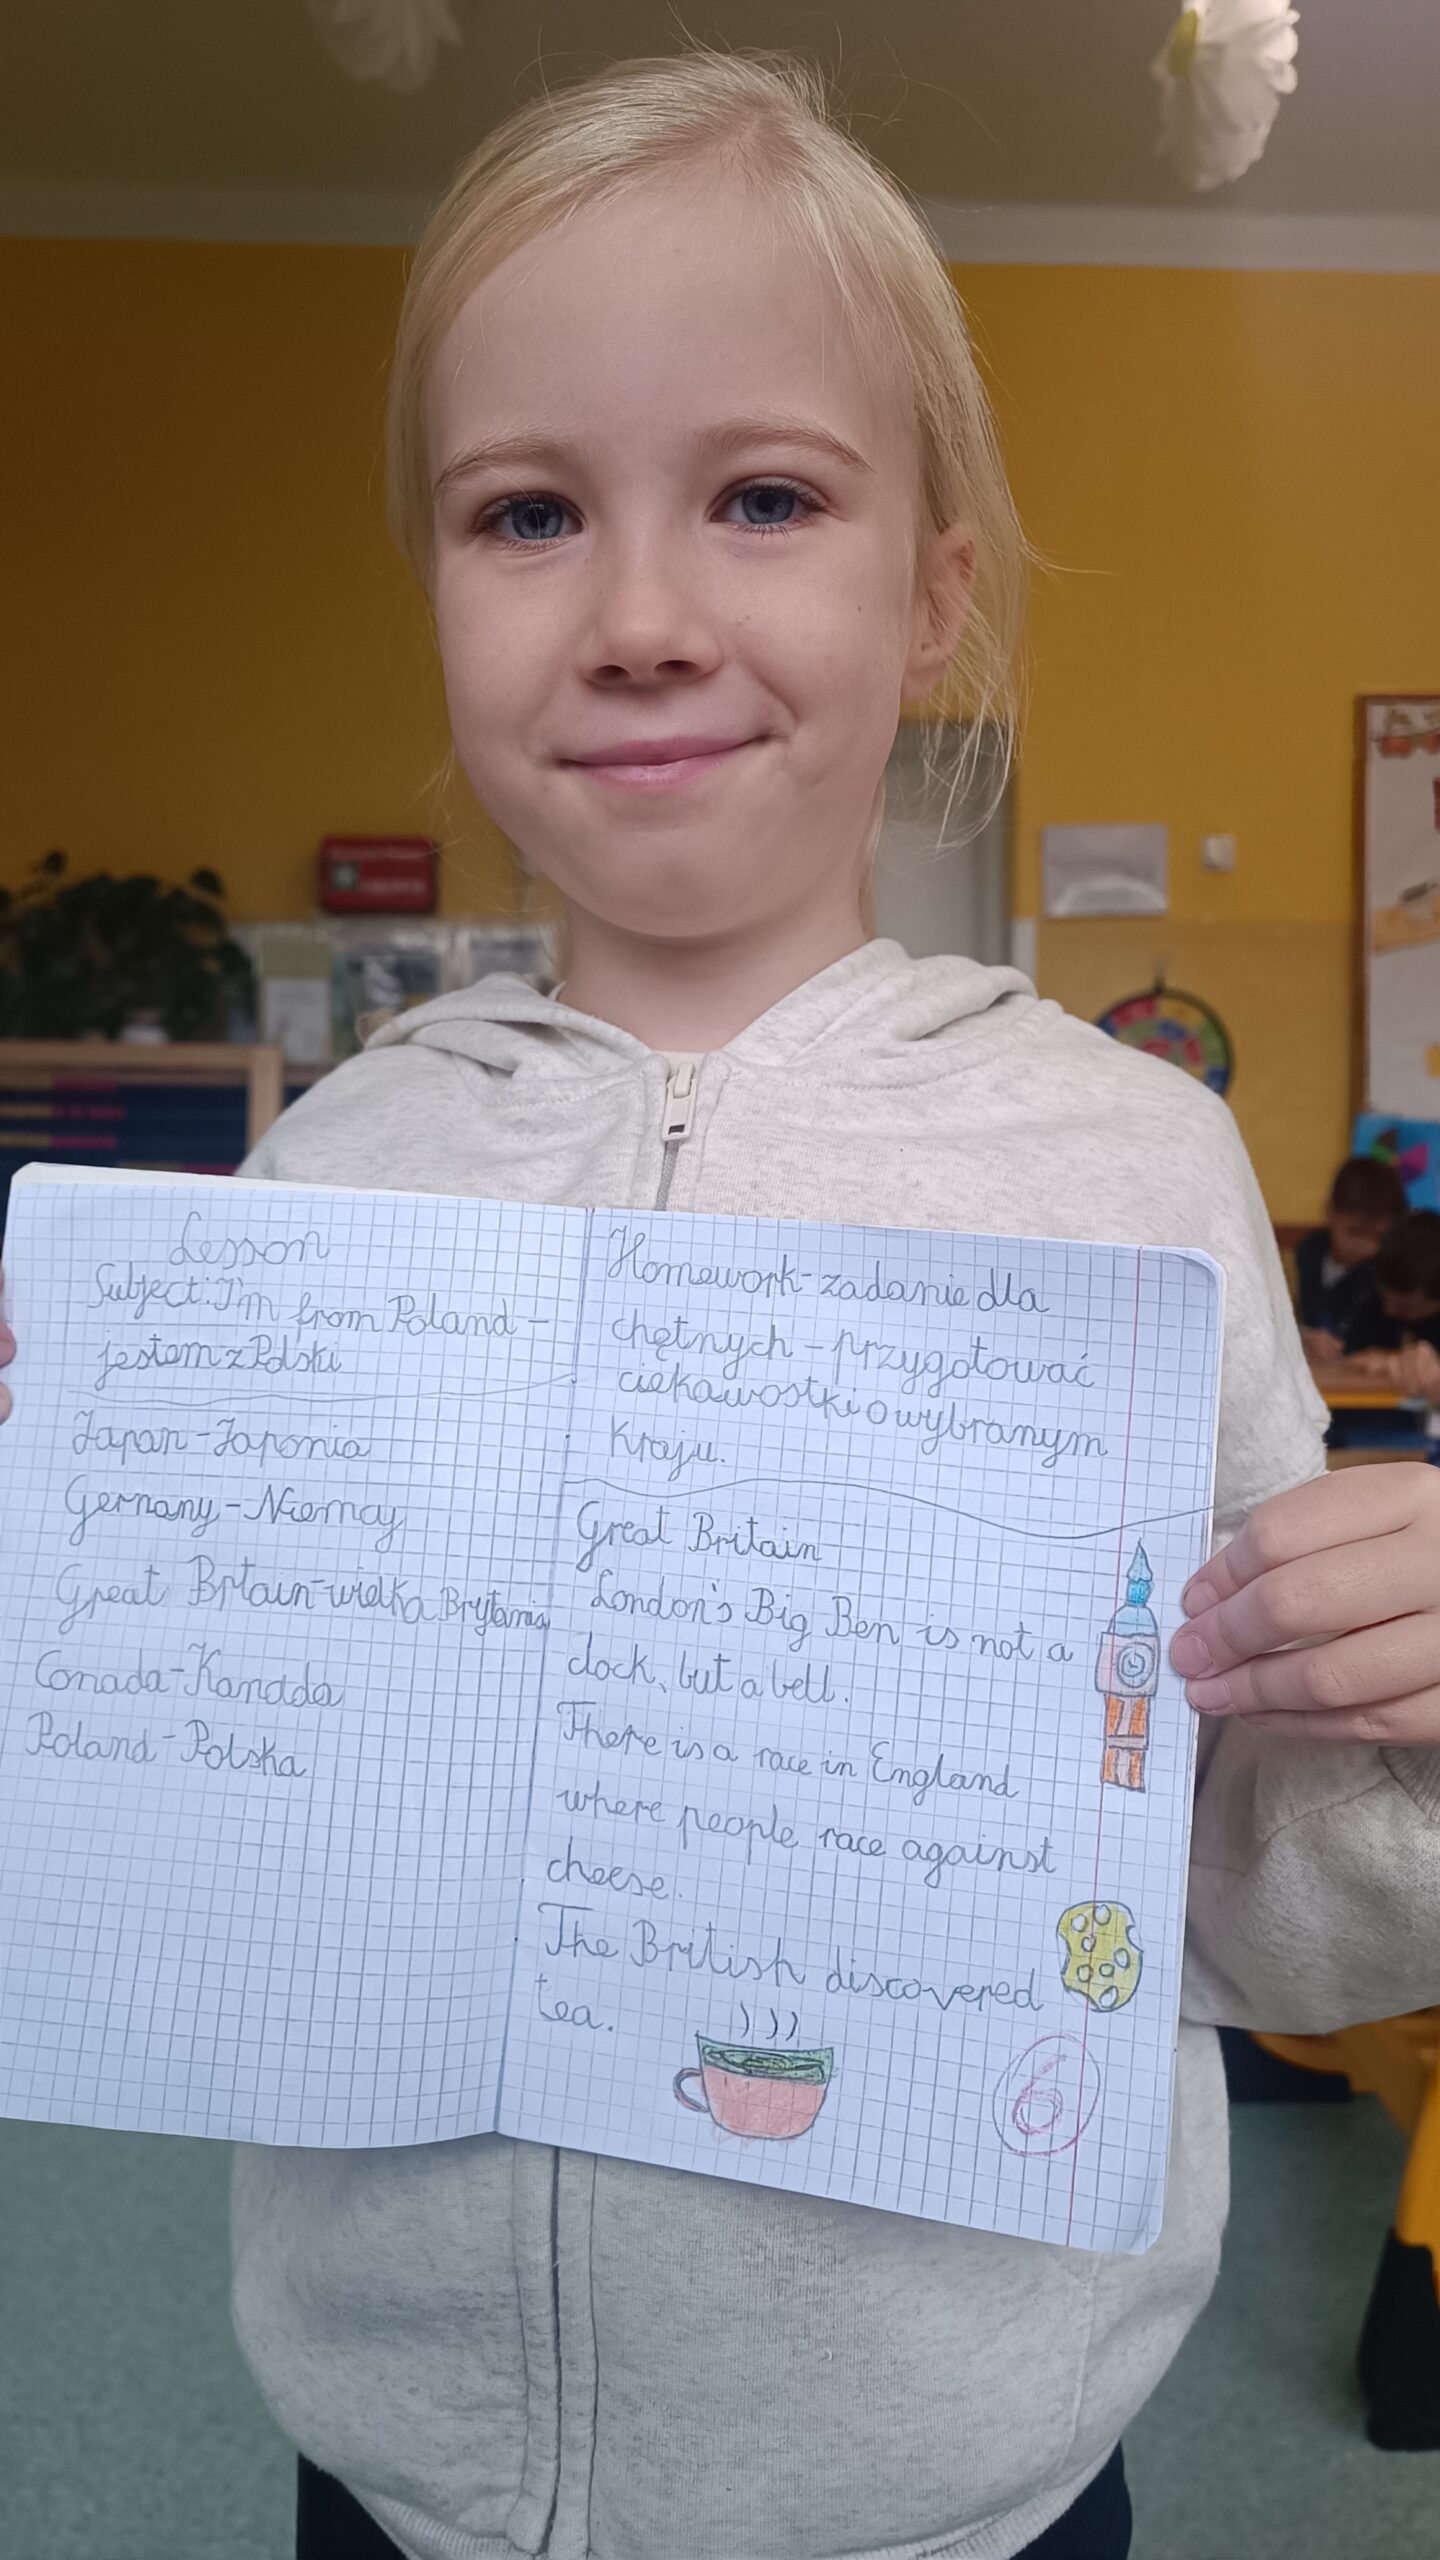 Lesson
Subject: I'm from Poland -
jestem z Polski
Japan - Japonia
Germany - Niemcy
Great Britain - wielka Brytania
Canada - Kanada
Poland - Polska
Homework - zadanie dla
chętnych - przygotować
ciekawostki o wybranym
Kraju.
Great Britain
London's Big Ben is not a
clock, but a bell.
There is a race in England
where people race against
cheese.
The British discovered
tea.
6